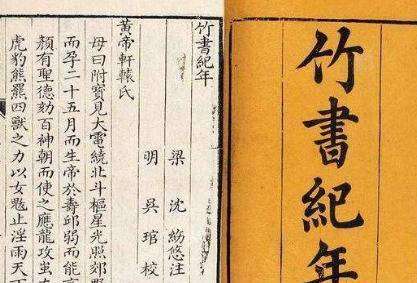 竹書紀年
竹書紀年
梁 沈 約 注
明 吳 琯 校
黃帝軒轅氏
母曰附寶見大電繞北斗樞星光照郊野
而孕二十五月而生帝於壽邱弱而能
顏有聖德劾百神朝而使之應龍攻蚩
虎豹熊羆四獸之力以女魃止淫雨天下